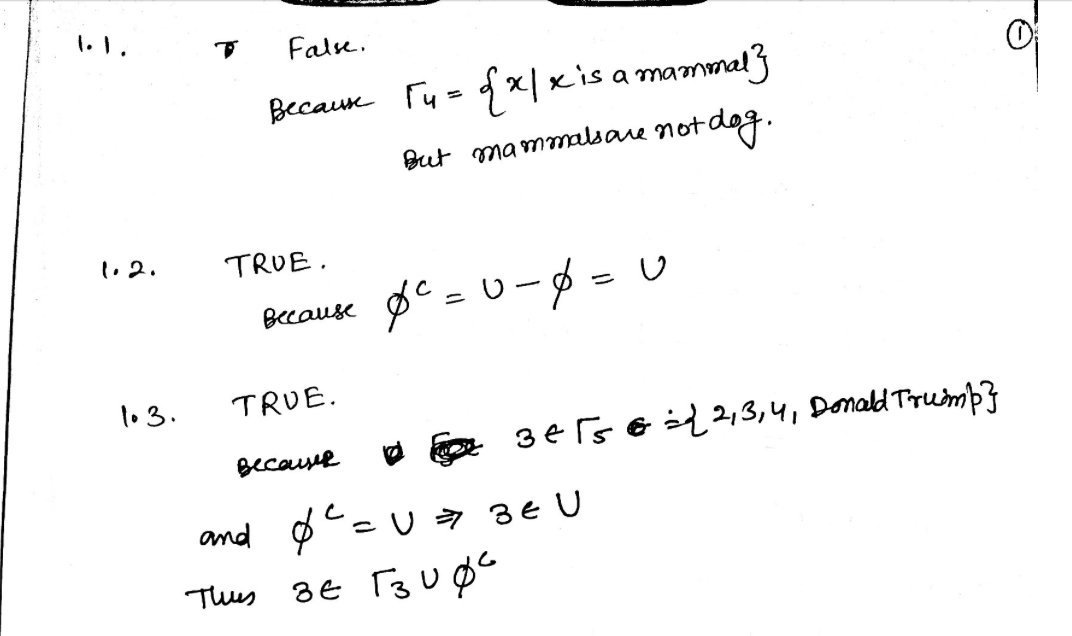 ①
1.1. False.
Because Γ4 = {x | x is a mammal}
But mammals are not dog.
1.2. TRUE.
Because ϕᶜ = U - ϕ = U
1.3. TRUE.
Because 3 ∈ Γ5 = {2,3,4, Donald Trump}
and ϕᶜ = U ⇒ 3 ∈ U
Thus 3 ∈ Γ3 ∪ ϕᶜ